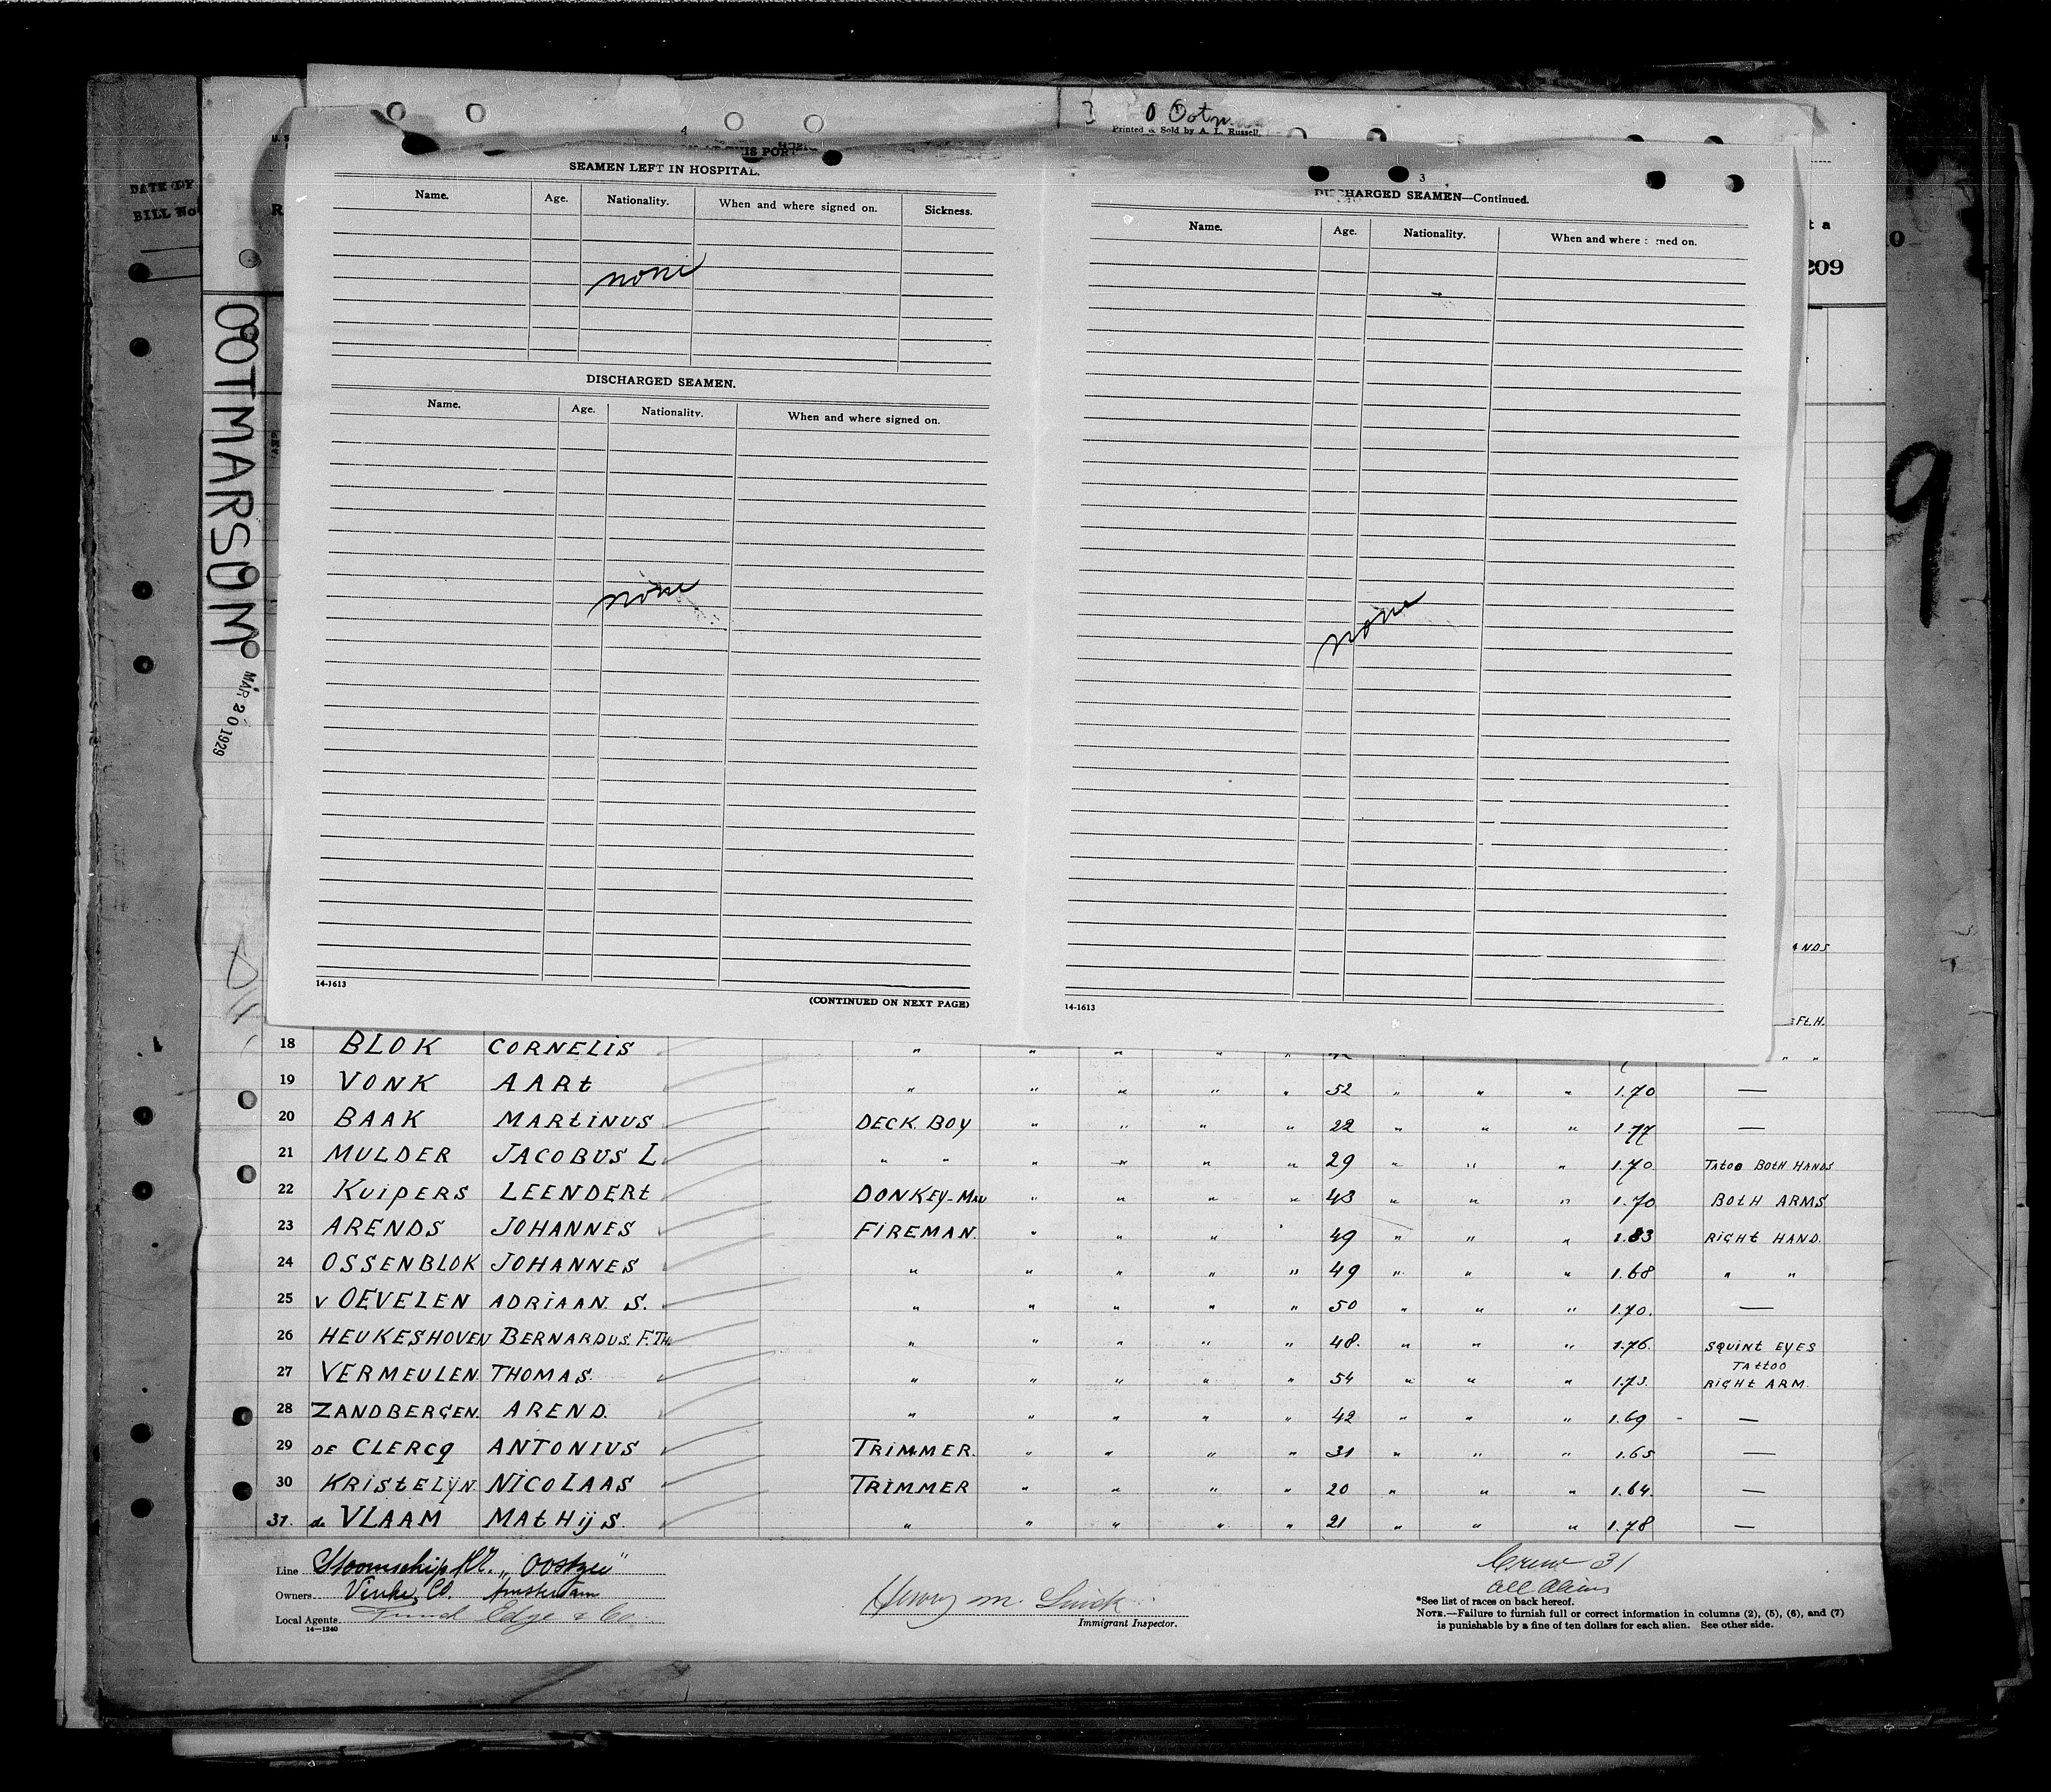 DATE OF
BILL No
OOTMARSOM
MAR 20 1929
9
209
4
SEAMEN LEFT IN HOSPITAL.
Name. Age. Nationality. When and where signed on. Sickness.
none
DISCHARGED SEAMEN.
Name. Age. Nationality. When and where signed on.
none
14-1613
(CONTINUED ON NEXT PAGE)
Printed & Sold by A. L. Russell,
3
DISCHARGED SEAMEN—Continued.
Name. Age. Nationality. When and where signed on.
none
14-1613
ANDS
Ft. H.
18 BLOK CORNELIS " " " " " " " " " "
19 VONK AARt " " " " " 52 " " " 1.70 —
20 BAAK MARtINUS DECK BOY " " " " 22 " " " 1.77 —
21 MULDER JACOBUS L " " " " " " 29 " " " 1.70 TAtoo BOtH HANDS
22 KUIPERS LEENDERt DONKEY-MAN " " " " 43 " " " 1.70 BOtH ARMS
23 ARENDS JOHANNES FIREMAN. " " " " 49 " " " 1.83 RIGHt HAND.
24 OSSENBLOK JOHANNES " " " " " 49 " " " 1.68 " "
25 v OEVELEN ADRIAAN. S. " " " " " 50 " " " 1.70. —
26 HEUKESHOVEN BERNARDUS. F. TH. " " " " " 48. " " " 1.76. SQUINt EYES
TAttOO
27 VERMEULEN. THOMAS. " " " " " 54 " " " 1.73. RIGHt ARM.
28 ZANDBERGEN. AREND. " " " " " 42 " " " 1.69 —
29 DE CLERCQ ANTONIUS TRIMMER. " " " " 31 " " " 1.65 —
30 KRIStELIJN. NICOLAAS TRIMMER " " " " 20 " " " 1.64. —
31. de VLAAM MAtHIJS. " " " " " 21 " " " 1.78 —
Line Stoomschip Mt. „Oostzee"
Owners Vinke & Co. Amsterdam
Local Agents Funch Edye & Co.
14—1240
Henry M.
Immigrant Inspector.
Crew 31
all Aliens
*See list of races on back hereof.
NOTE.—Failure to furnish full or correct information in columns (2), (5), (6), and (7)
is punishable by a fine of ten dollars for each alien. See other side.